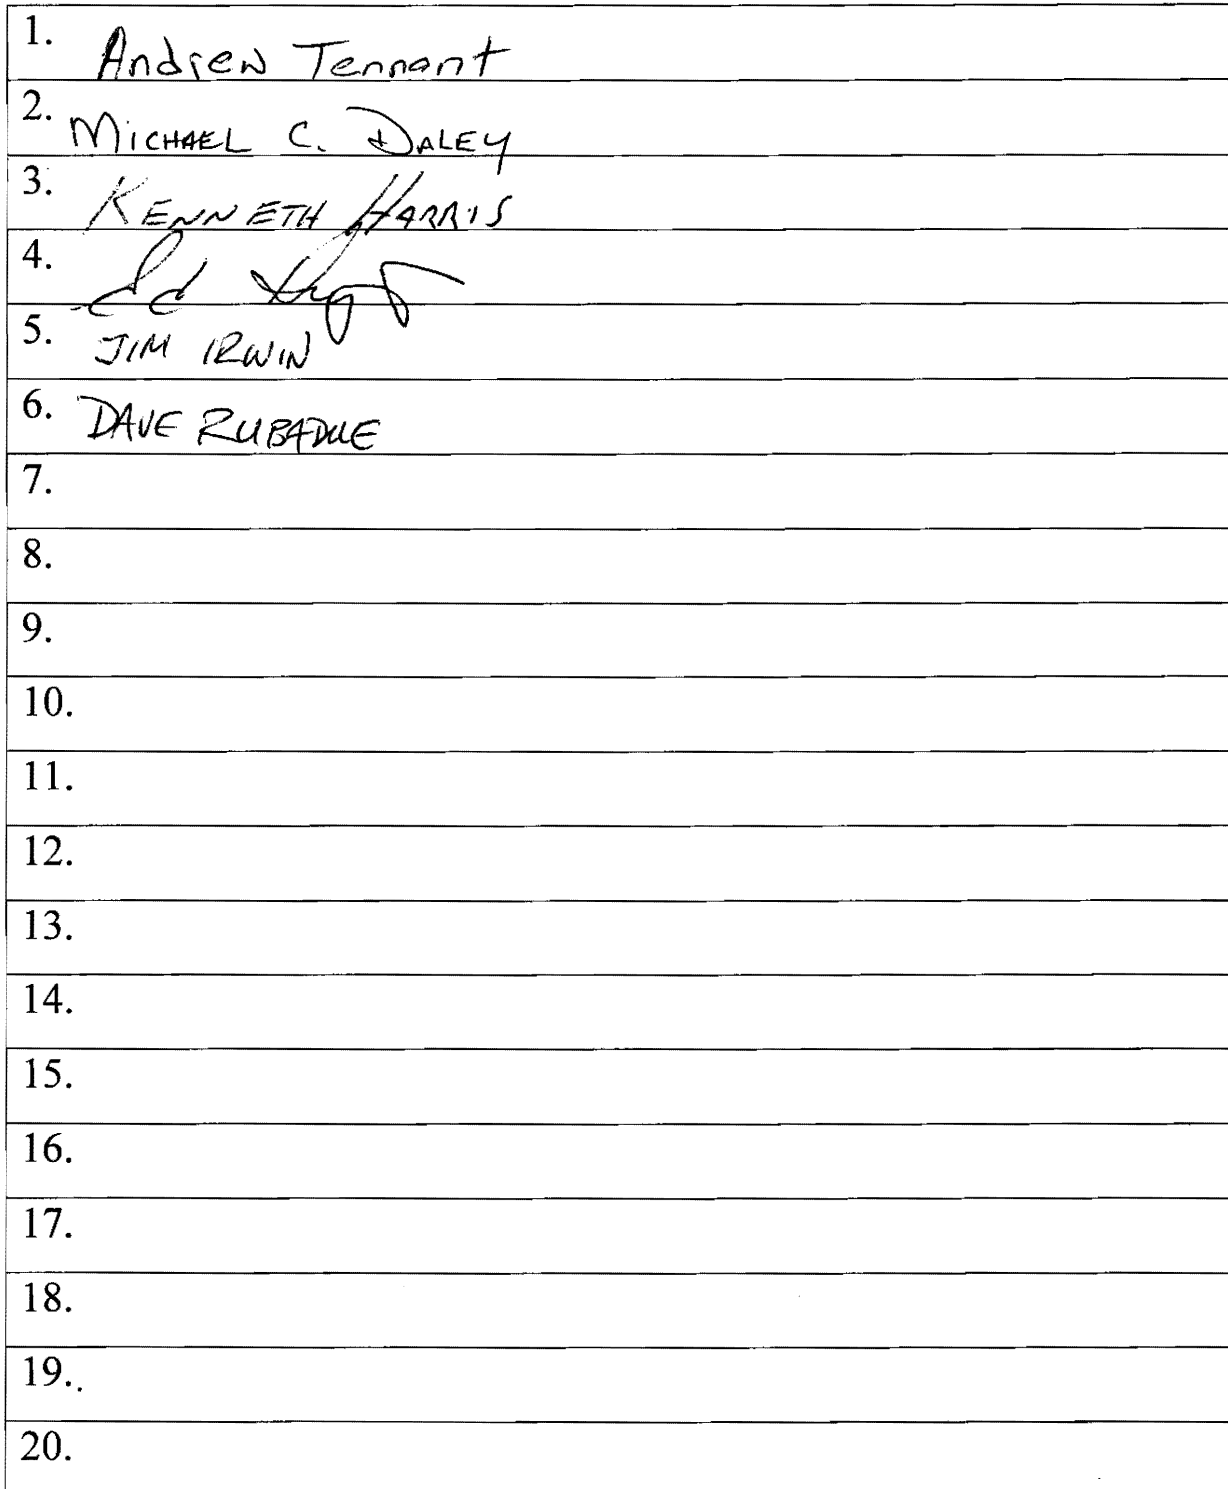 1. Andrew Tennant
2. MICHAEL C. DALEY
3. KENNETH HARRIS
4. Ed
5. JIM IRWIN
6. DAVE RUBADUE
7.
8.
9.
10.
11.
12.
13.
14.
15.
16.
17.
18.
19..
20.